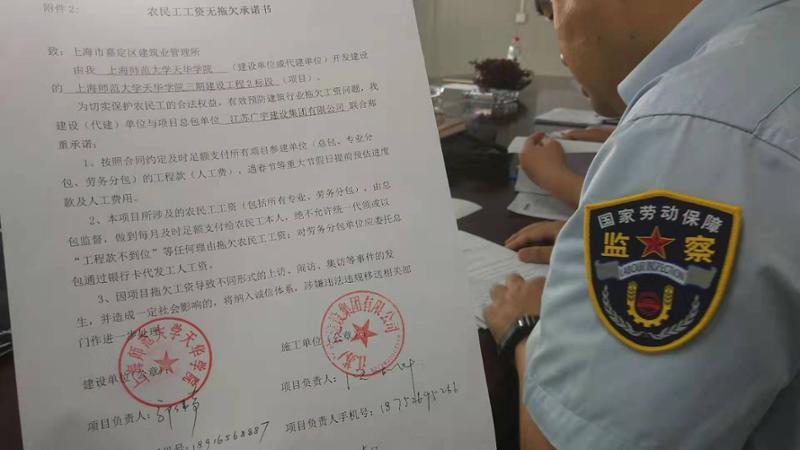 附件2：
农民工工资无拖欠承诺书
致：上海市嘉定区建筑业管理所
由我 上海师范大学天华学院 （建设单位或代建单位）开发建设
的 上海师范大学天华学院三期建设工程2标段（项目）。
为切实保护农民工的合法权益，有效预防建筑行业拖欠工资问题，我
建设（代建）单位与项目总包单位 江苏广宇建设集团有限公司 联合郑
重承诺：
1、按照合同约定及时足额支付所有项目参建单位（总包、专业分
包、劳务分包）的工程款（人工费），遇春节等重大节假日提前预估进度
款及人工费用。
2、本项目所涉及的农民工工资（包括所有专业、劳务分包），由总
包监督，做到每月及时足额支付给农民工本人，绝不允许统一代领或以
“工程款不到位”等任何理由拖欠农民工工资；对劳务分包单位应委托总
包通过银行卡代发工人工资。
3、因项目拖欠工资导致不同形式的上访、闹访、集访等事件的发
生，并造成一定社会影响的，将纳入诚信体系，涉嫌违法违规移送相关部
门作进一步处理。
建设单位（公章）：
上海师范大学天华学院
施工单位（公章）
建设集团有限公司
项目负责人：
项目负责人：
号：18916568887
项目负责人手机号：18752695266
国家劳动保障
监察
LABOUR INSPECTION